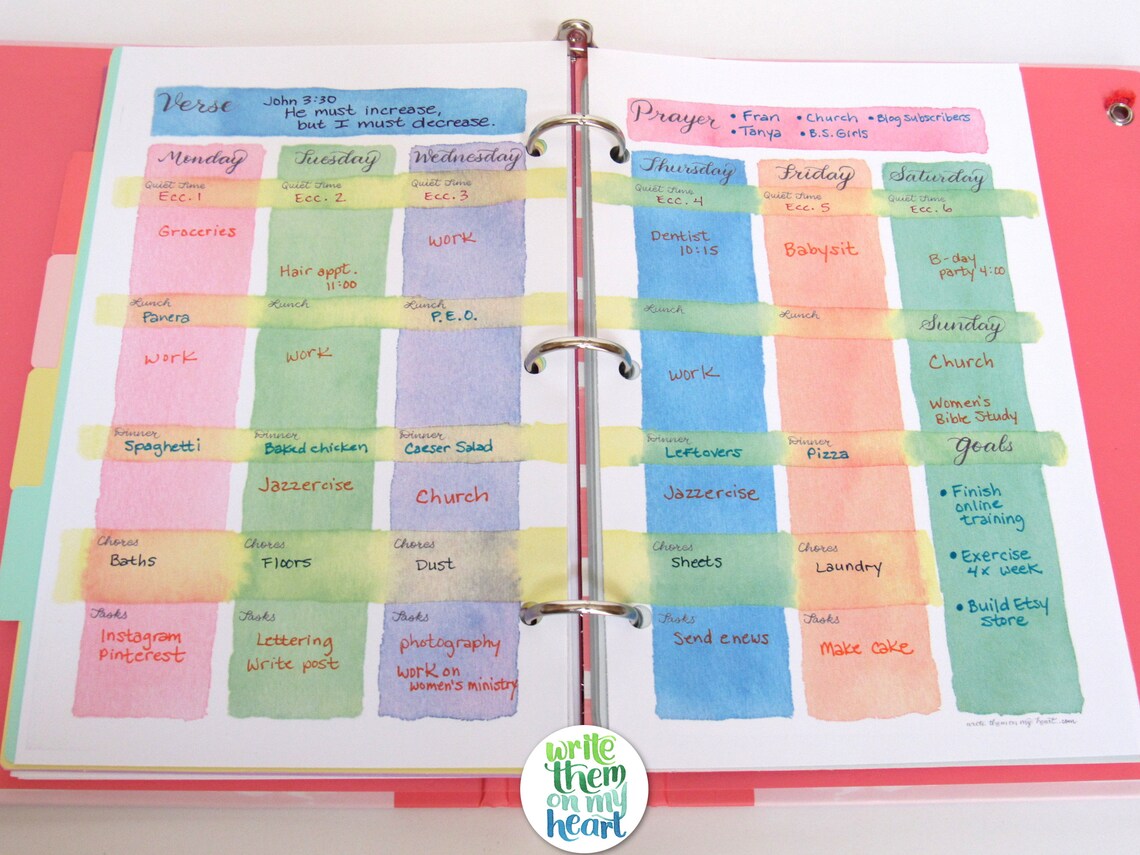 Verse
John 3:30
He must increase,
but I must decrease.
Monday
Quiet Time
Ecc. 1
Groceries
Lunch
Panera
Work
Dinner
Spaghetti
Chores
Baths
Tasks
Instagram
Pinterest
Tuesday
Quiet Time
Ecc. 2
Hair appt.
11:00
Lunch
Work
Dinner
Baked chicken
Jazzercise
Chores
Floors
Tasks
Lettering
Write post
Wednesday
Quiet Time
Ecc. 3
Work
Lunch
P.E.O.
Dinner
Caeser Salad
Church
Chores
Dust
Tasks
photography
Work on
women's ministry
Prayer
• Fran • Church • Blog subscribers
• Tanya • B.S. Girls
Thursday
Quiet Time
Ecc. 4
Dentist
10:15
Lunch
Work
Dinner
Leftovers
Jazzercise
Chores
Sheets
Tasks
Send enews
Friday
Quiet Time
Ecc. 5
Babysit
Lunch
Dinner
Pizza
Chores
Laundry
Tasks
Make cake
Saturday
Quiet Time
Ecc. 6
B-day
party 4:00
Sunday
Church
Women's
Bible Study
Goals
• Finish
online
training
• Exercise
4x week
• Build Etsy
store
write them on my heart.com
write
them
on my
heart